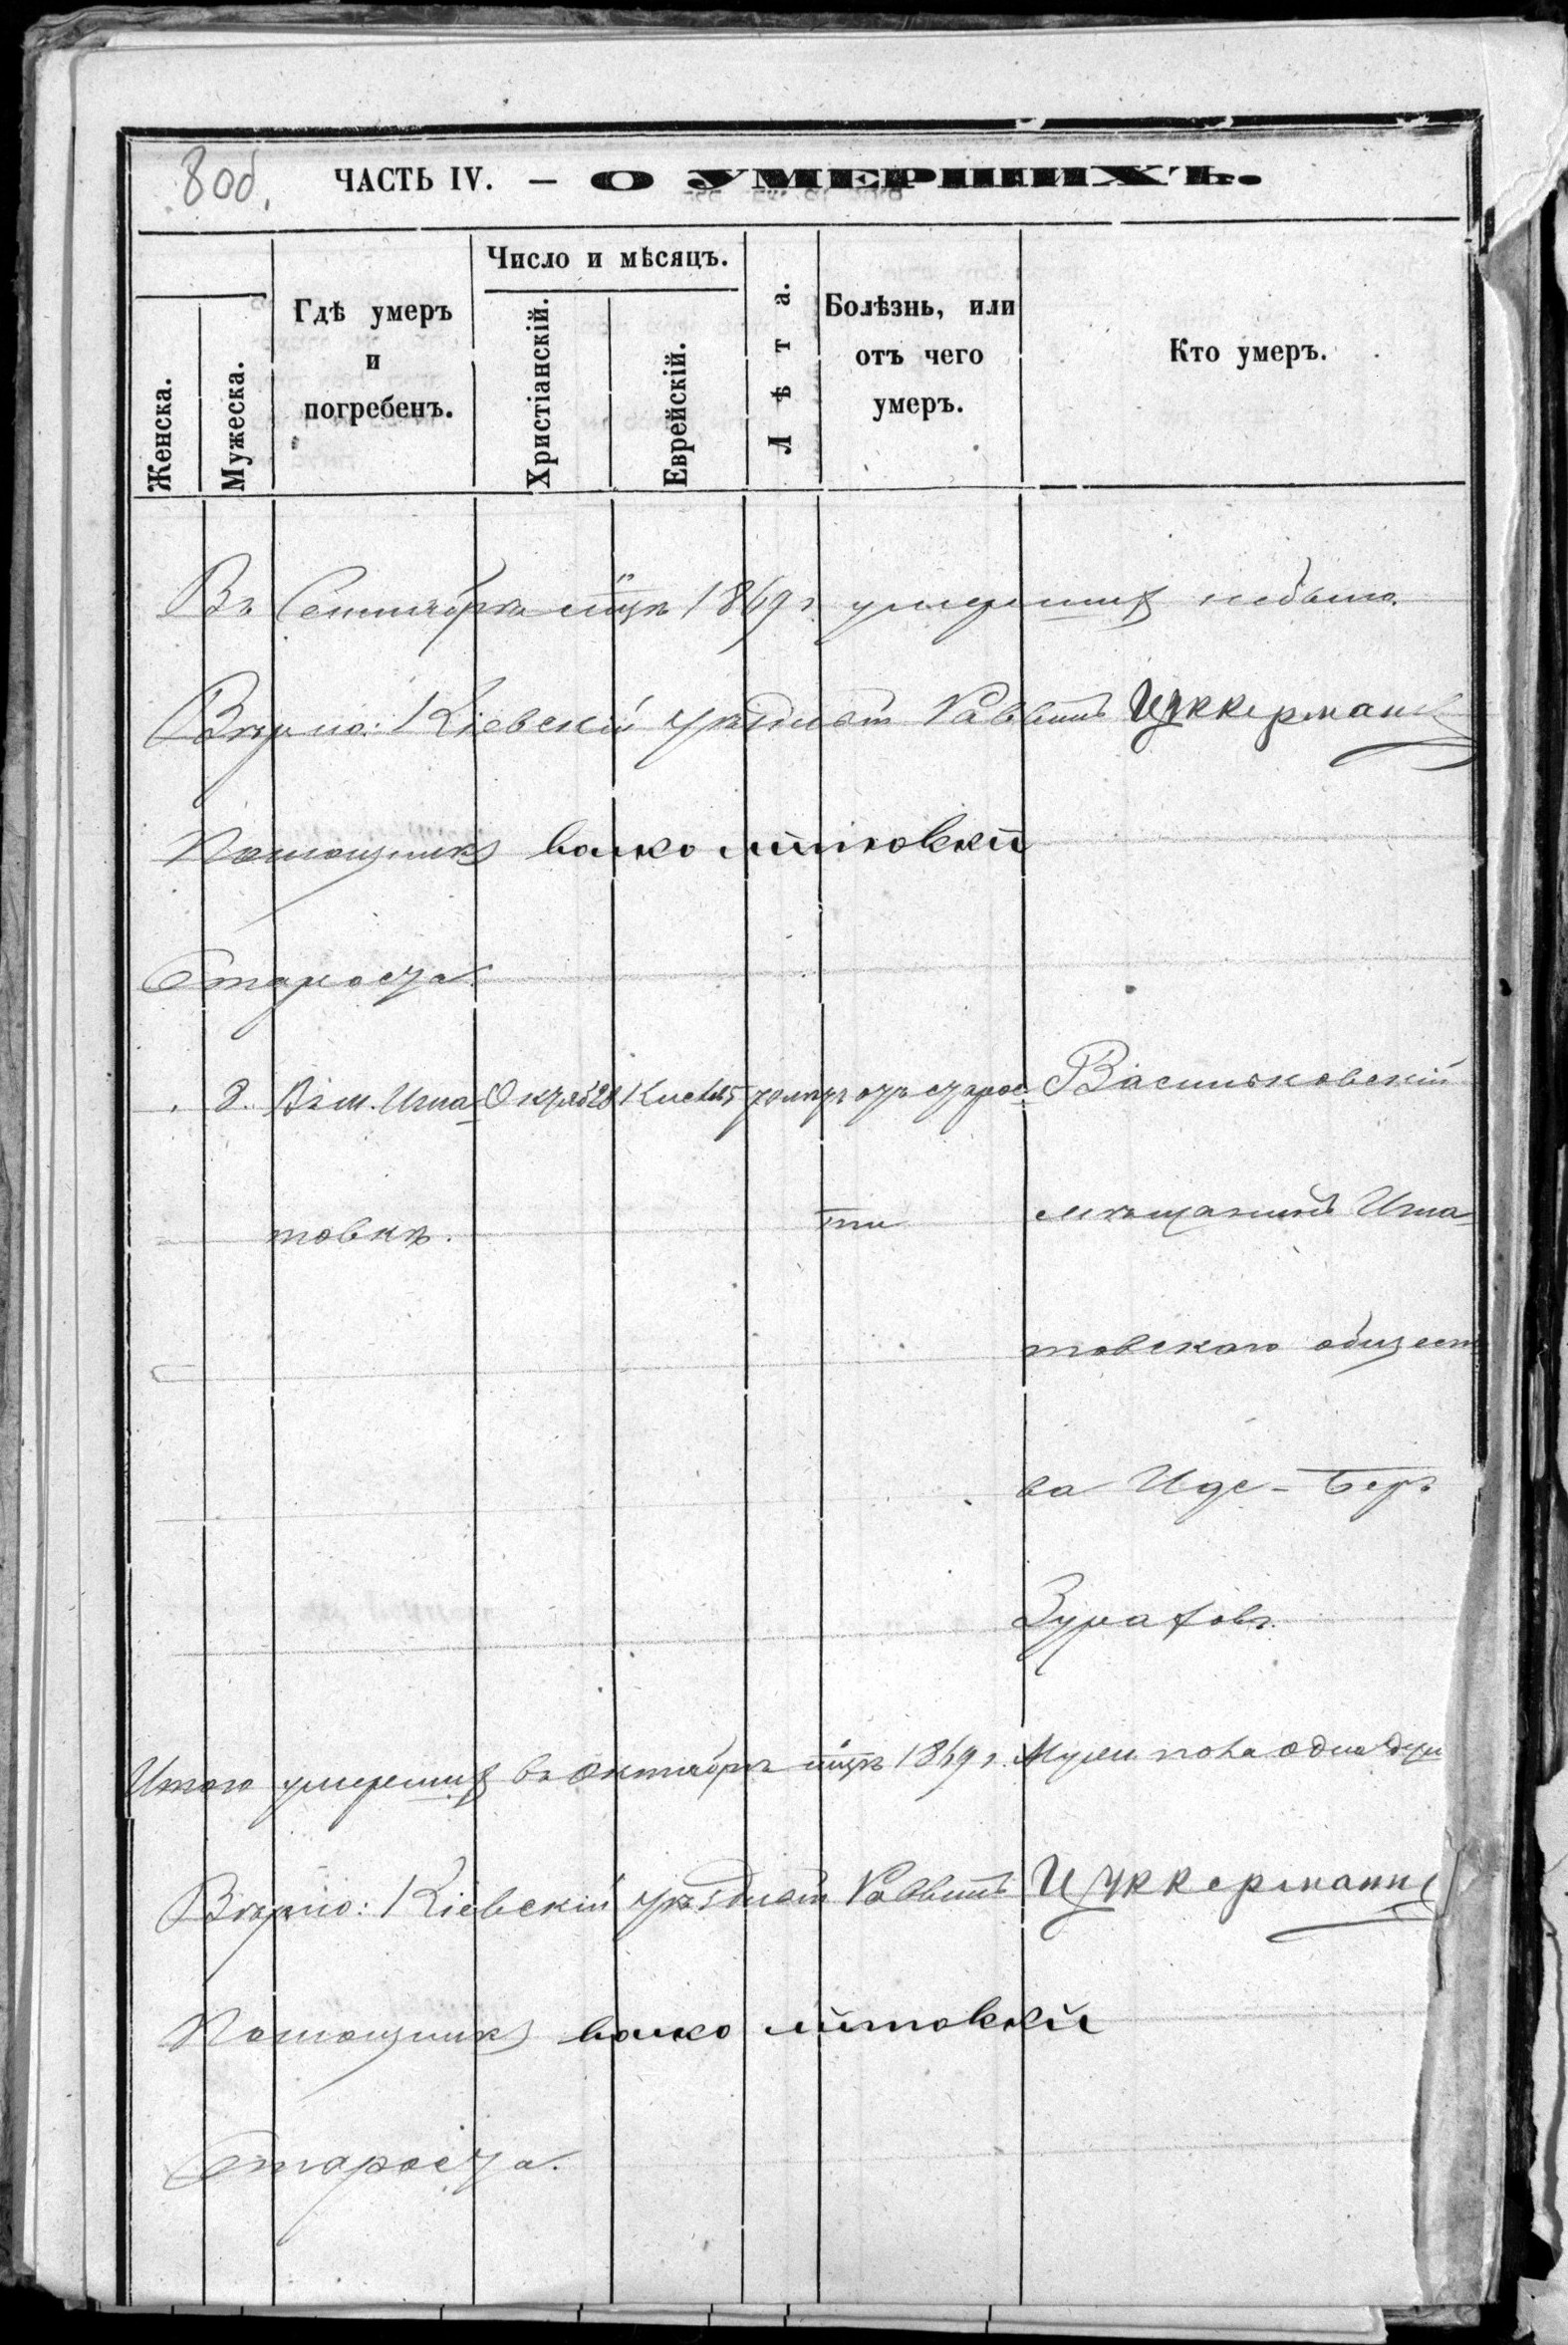 8 об.
ЧАСТЬ IV. — О УМЕРШИХЪ.
Женска.
Мужеска.
Гдѣ умеръ
и
погребенъ.
Число и мѣсяцъ.
Христіанскій.
Еврейскій.
Лѣта.
Болѣзнь, или
отъ чего
умеръ.
Кто умеръ.
Въ Сентябрѣ м͞цѣ 1869 г. умершихъ небыло.
Вѣрно: Кіевскій уѣздный Раввинъ Цуккерманъ
Помощникъ
Староста
8. Въ м. Игна- Октяб 28 Кислев 5 70 лѣтъ отъ старос- Васильковскій
товкѣ. ти мѣщанинъ Игна-
товскаго общест
ва Иде-Беръ
Зуратовъ.
Итого умершихъ въ Октябрѣ м͞цѣ 1869 г. Муж. пола одна душ
Вѣрно: Кіевскій уѣздный Раввинъ Цуккерманъ
Помощникъ
Староста.